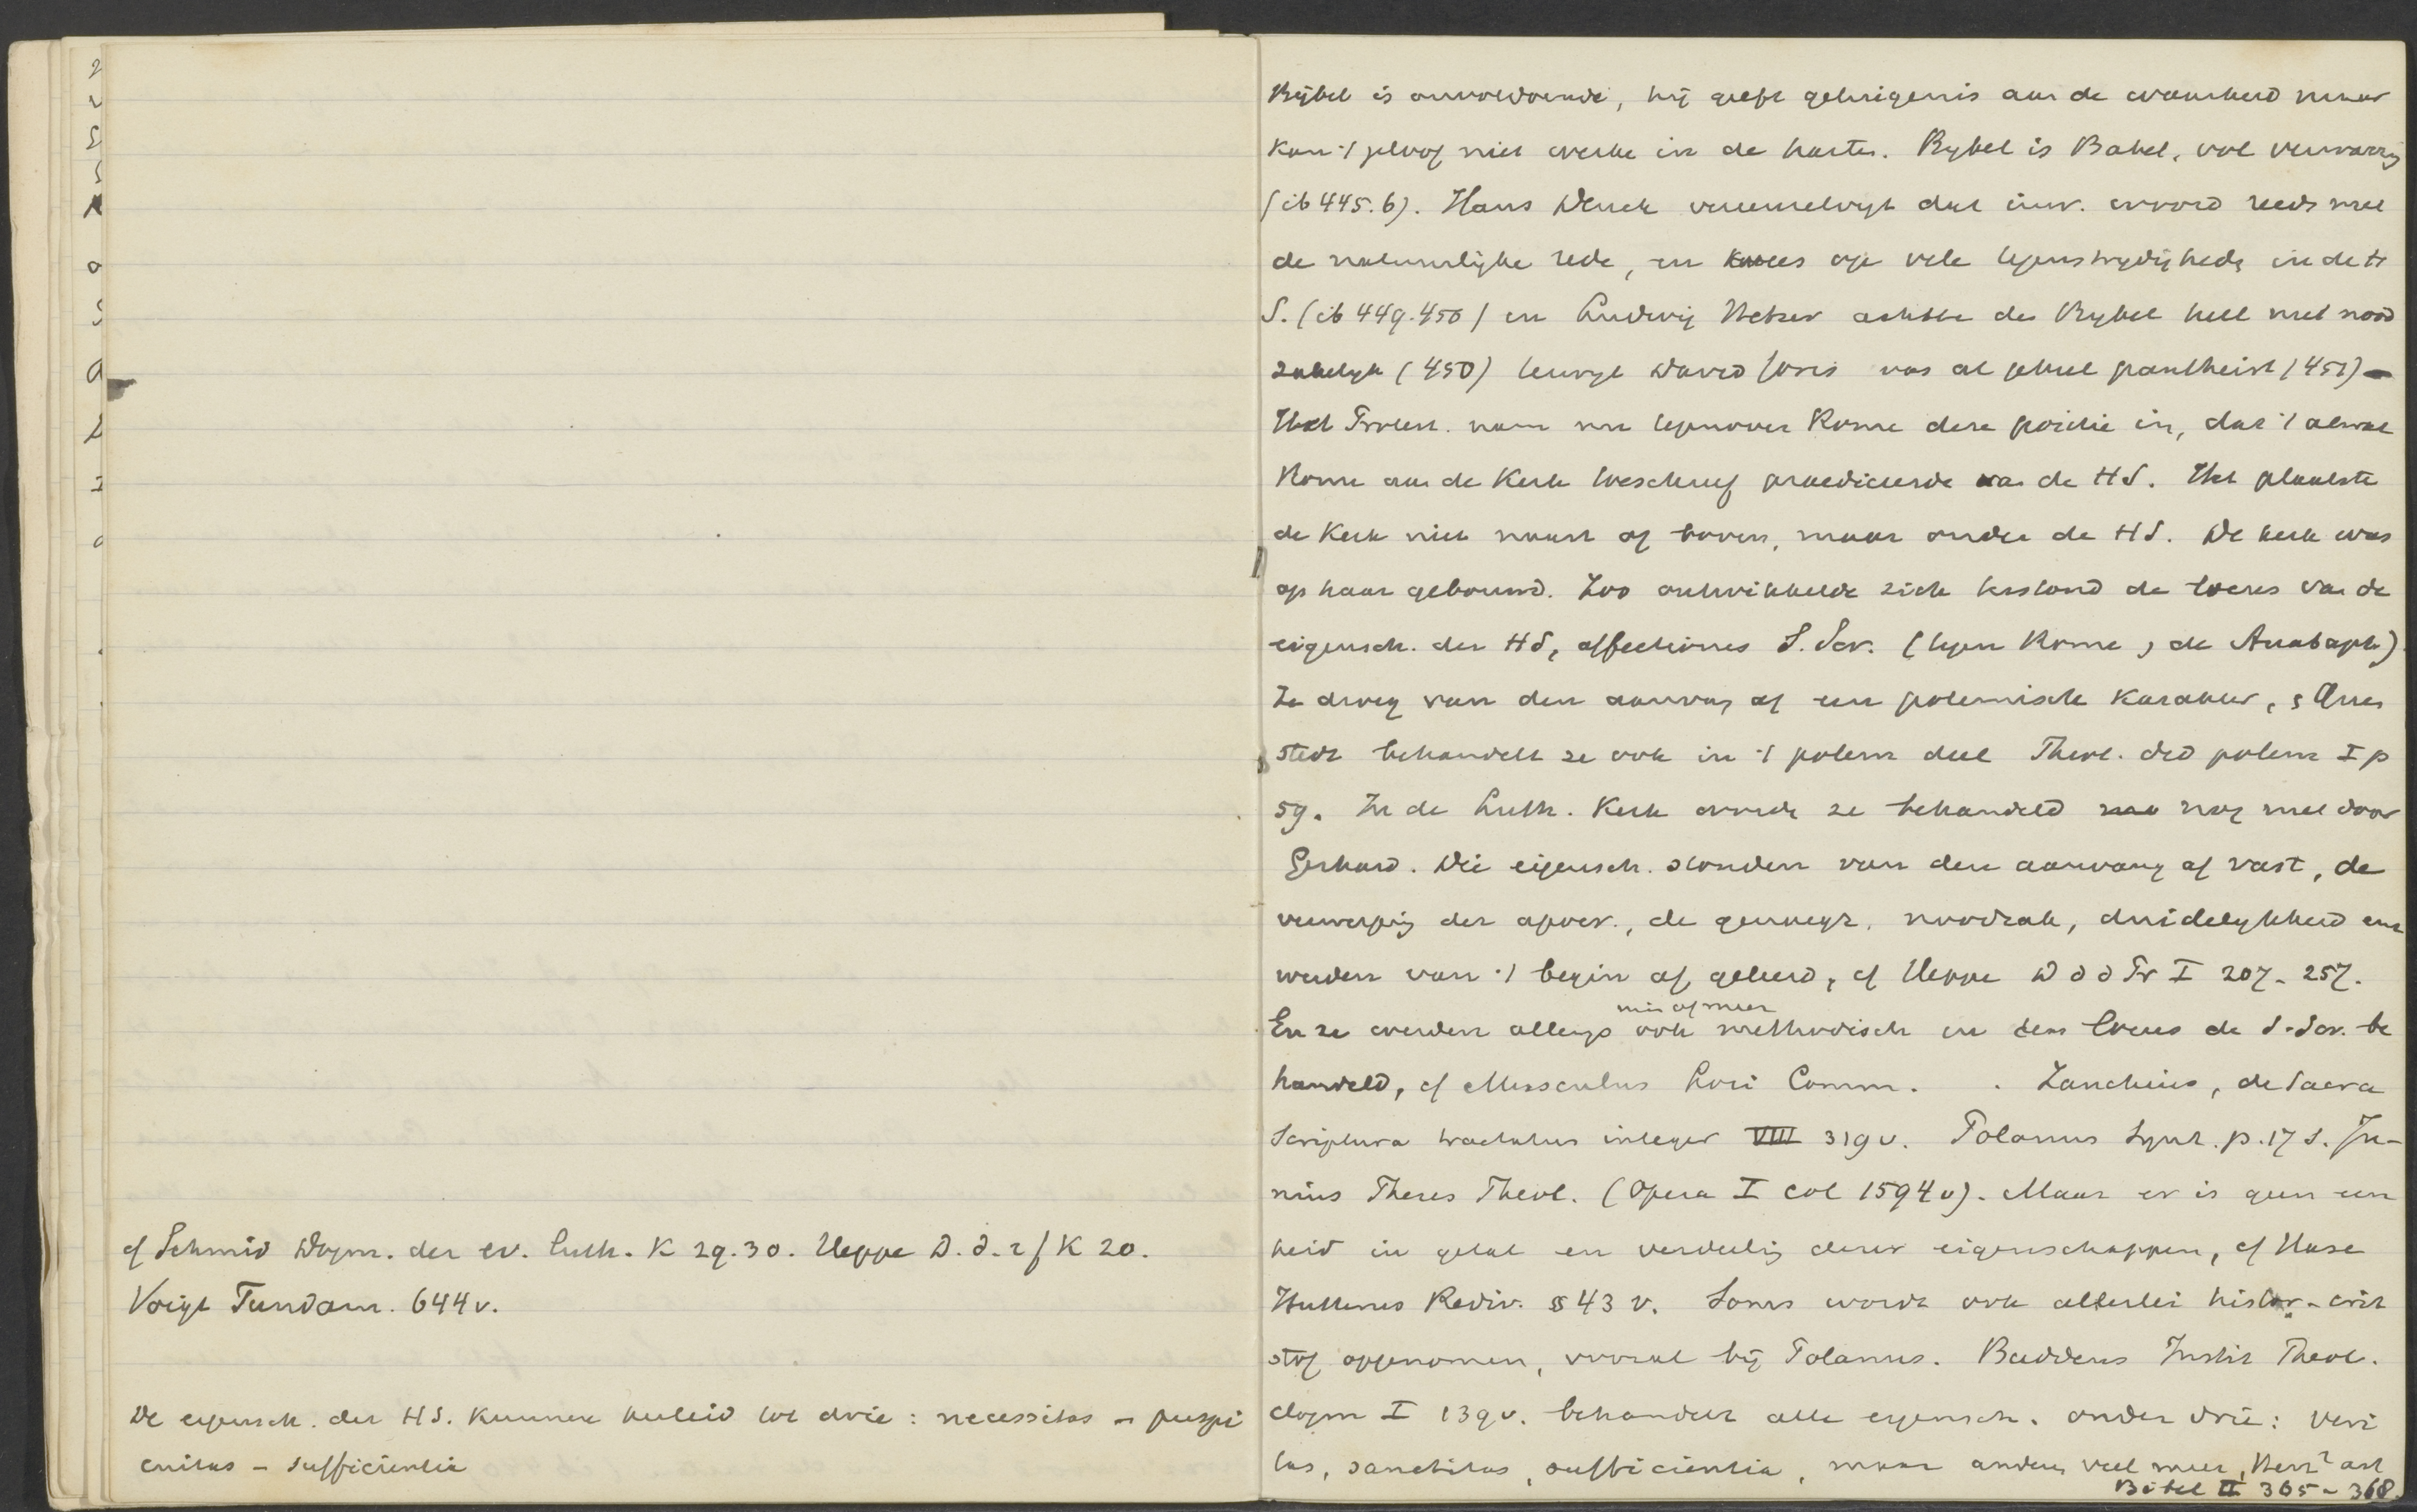 cf Schmid Dogm. der ev. luth. K 29.30. Heppe D. d. ref K 20.
Voigt Fundam. 644 v.
De eigensch. der HS. kunnen herleid tot drie: necessitas – perspi
cuitas – sufficientia
Bijbel is onvoldoende, hij geeft getuigenis aan de waarheid maar
kan 't geloof niet werke in de harten. Bybel is Babel, vol verwarrg
(ib 445.6). Hans Denck vereenzelvigt dat inw. woord reeds met
de natuurlijke rede, en wees op vele tegenstrydigheden in de H
S. (ib 449.450) en Ludwig Hetzer achtte de Bybel heel niet nood
zakelyk (450) terwyl David Joris was al geheel pantheist (451) –
Het Protest. nam nu tegenover Rome deze positie in, dat 't alwat
Rome aan de Kerk toeschreef praediceerde van de HS. Het plaatste
de Kerk niet naast of boven, maar onder de HS. De kerk was
op haar gebouwd. Zoo ontwikkelde zich terstond de locus van de
eigensch. der HS, affectiones S. Scr. (tegen Rome, de Anabapt.)
Ze droeg van den aanvang af een polemisch karakter, Quen
stedt behandelt ze ook in 't polem deel Theol. did polem I p
59. In de Luth. Kerk werde ze behandeld nog niet door
Gerhard. Die eigensch. stonden van den aanvang af vast, de
verwerping der apocr., de genoegz. noodzak, duidelykheid enz
werden van 't begin af geleerd, cf Heppe D d d Pr I 207-257.
En ze werden allengs ook min of meer methodisch in den locus de S. Scr. be
handeld, cf Musculus Loci Comm. . Zanchius, de Sacra
Scriptura tractatus integer VIII 319 v. Polanus Synt. p. 17 s. Ju-
nius Theses Theol. (Opera I col 1594 v). Maar er is geen een
heid in getal en verdeeling dezer eigenschappen, cf Hase
Hutterus Rediv. §§ 43 v. Soms wordt ook allerlei histor-crit
stof opgenomen, vooral bij Polanus. Buddeus Instit Theol.
dogm I 139 v. behandelt alle eigensch. onder drie: veri
tas, sanctitas, sufficientia, maar anderen veel meer, Herz² art
Bibel II 365-368.